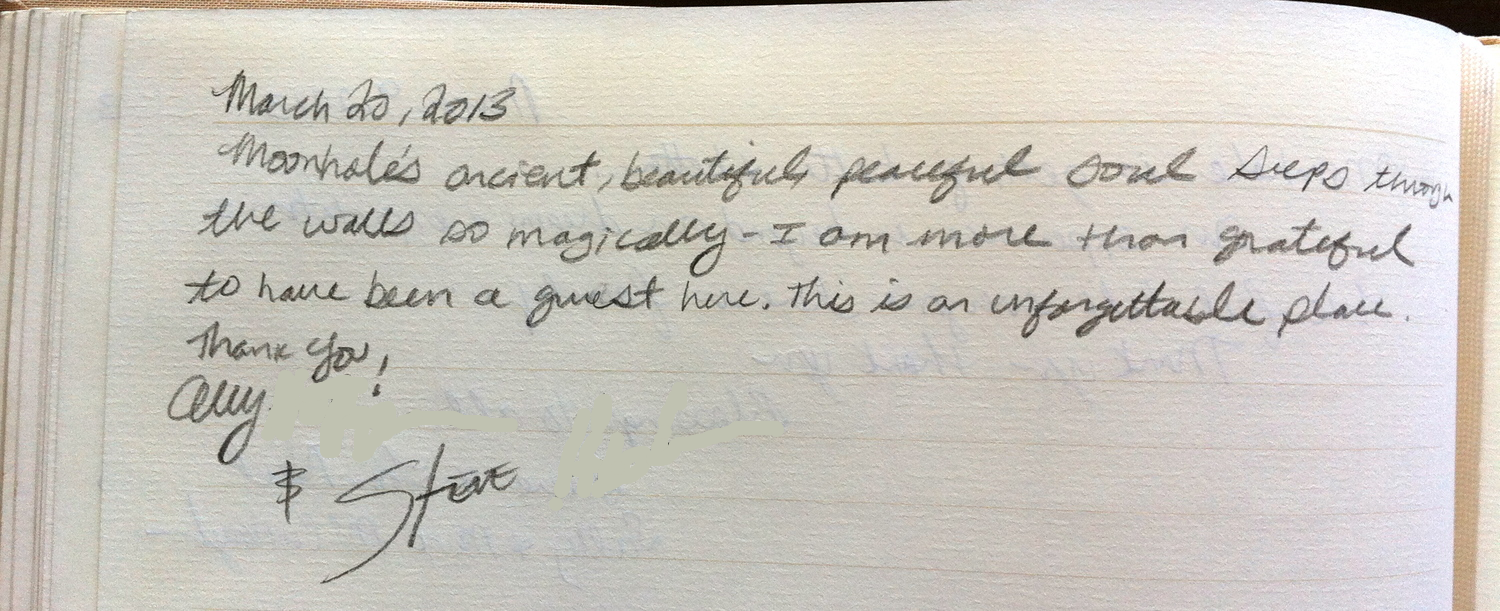 March 20, 2013
Moonhole's ancient, beautiful, peaceful soul seeps through
the walls so magically - I am more than grateful
to have been a guest here. This is an unforgettable place.
Thank you!
Ally
& Steve